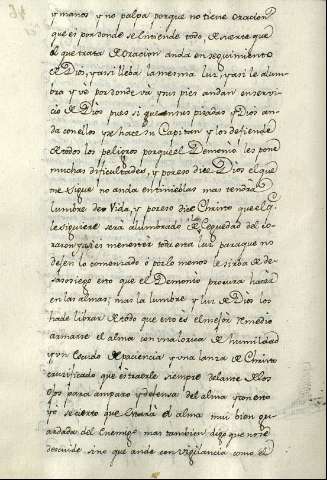 y manos y no palpa porque no tiene oracion
que es por donde se entiende todo, de suerte que
el que trata de oracion anda en seguimiento
de Dios, y assi lleba la mesma luz, y assi le alum
bra y vè por donde và y sus pies andan en servi
cio de Dios pues sigue sus pisadas y Dios an
da con ellos y se hace su Capitan y los defiende
de todos los peligros porque el Demonio les pone
muchas dificultades, y por eso dice Dios el que
me sigue no anda en tinieblas mas tendra
lumbre de Vida, y por eso dice Christo que el q.
le siguiere sera alumbrado de la Ceguedad del co
raçon y assi es menester toda esta luz para que no
dejen lo comensado ò por lo menos les sirba de de
sasosiego esto que el Demonio procura hacer
en las almas; mas la lumbre y luz de Dios los
hade librar de todo que esto es el mejor remedio
armarse el alma con una lorica de humildad
y un Escudo de paciencia y una lanza de Christo
crucificado que es traerle siempre delante de los
ojos para amparo y defensa del alma y con esto
yo se cierto que estarà el alma mui bien gu
ardada del Enemigo mas tambien digo que no se
descuide sino que ande con vigilancia como el